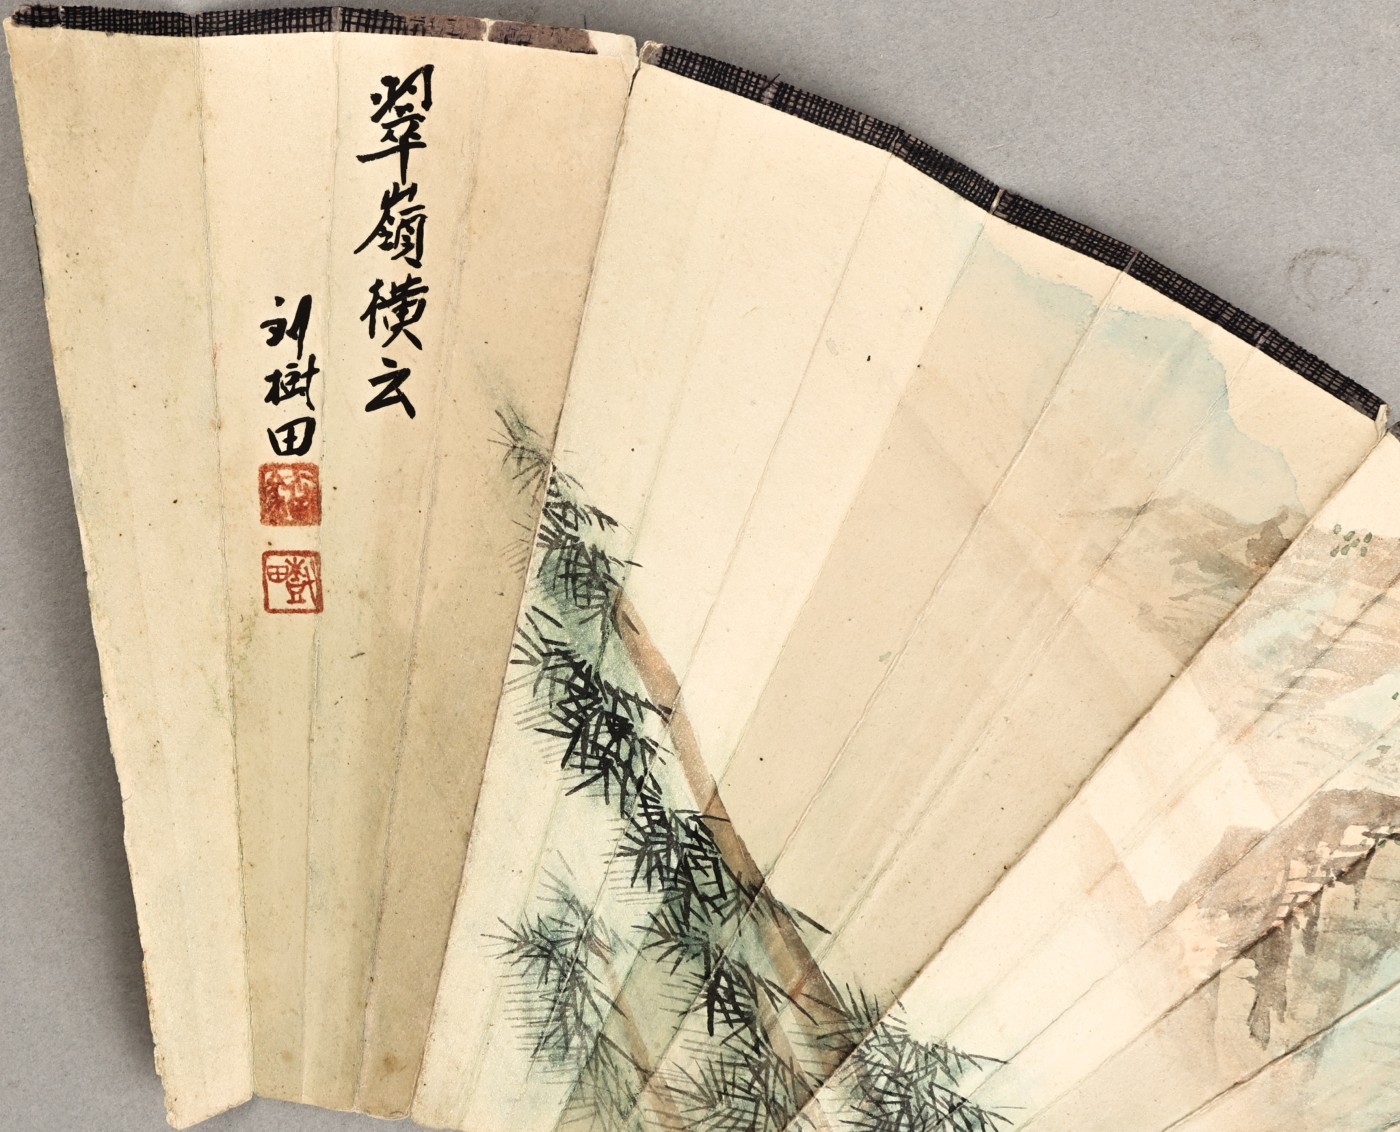 翠嶺横云
刘樹田